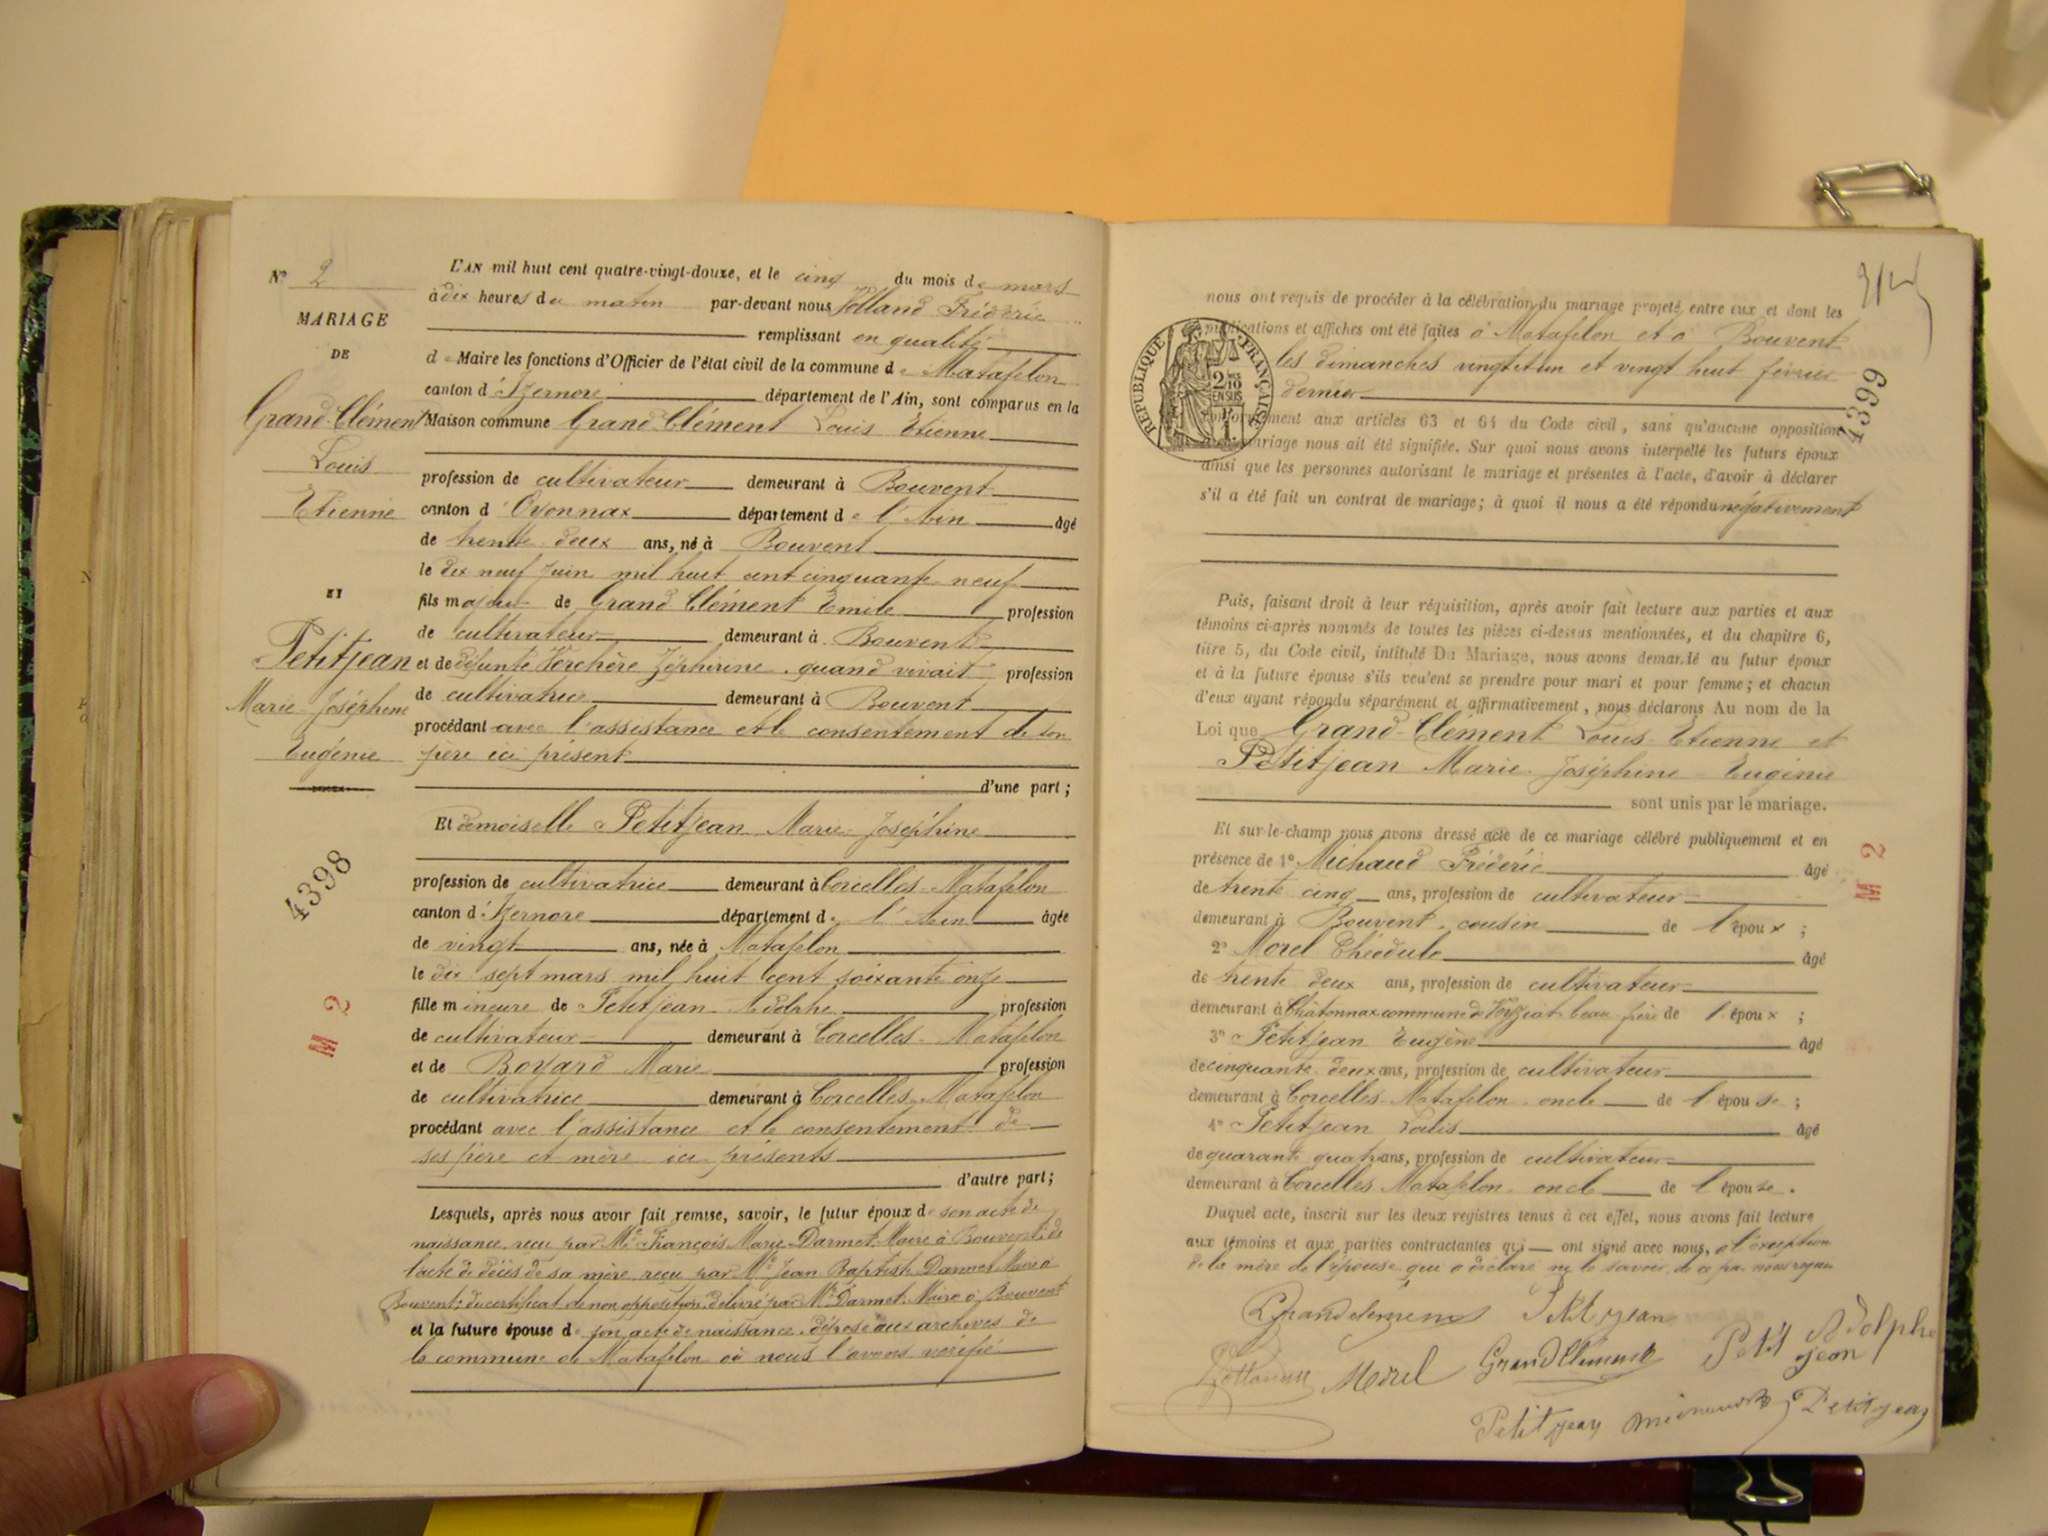 N° 2
MARIAGE
DE
Grand-Clément
Louis
Etienne
ET
Petitjean
Marie Joséphine
Eugénie
4398
M 2
L'AN mil huit cent quatre-vingt-douze, et le cinq du mois de mars
à dix heures du matin par-devant nous Jolland Fréderic
remplissant en qualité
de Maire les fonctions d'Officier de l'état civil de la commune de Matafelon
canton d'Izernore département de l'Ain, sont comparus en la
Maison commune Grand-Clément Louis Etienne
profession de cultivateur demeurant à Bouvent
canton d'Oyonnax département de l'Ain âgé
de trente deux ans, né à Bouvent
le dix neuf juin mil huit cent cinquante neuf
fils majeur de Grand Clément Emile profession
de cultivateur demeurant à Bouvent
et de défunte Verchère Zéphirine quand vivait profession
de cultivatrice demeurant à Bouvent
procédant avec l'assistance et le consentement de son
père ici présent
d'une part;
Et demoiselle Petitjean Marie Joséphine
profession de cultivatrice demeurant à Corcelles-Matafelon
canton d'Izernore département de l'Ain âgée
de vingt ans, née à Matafelon
le dix sept mars mil huit cent soixante onze
fille mineure de Petitjean Adolphe profession
de cultivateur demeurant à Corcelles-Matafelon
et de Boyard Marie profession
de cultivatrice demeurant à Corcelles-Matafelon
procédant avec l'assistance et le consentement de
ses père et mère ici présents
d'autre part;
Lesquels, après nous avoir fait remise, savoir, le futur époux de son acte de
naissance reçu par Me François Marie Darmet Maire à Bouvent; de
l'acte de décès de sa mère reçu par Me Jean Baptiste Darmet Maire à
Bouvent; du certificat de non opposition délivré par Me Darmet Maire à Bouvent
et la future épouse de son acte de naissance déposé aux archives de
la commune de Matafelon où nous l'avons vérifié
4399
M 2
nous ont requis de procéder à la célébration du mariage projeté entre eux et dont les
publications et affiches ont été faites à Matafelon et à Bouvent
les dimanches vingt et un et vingt huit février
dernier
REPUBLIQUE FRANÇAISE
2/10 EN SUS
conformément aux articles 63 et 64 du Code civil, sans qu'aucune opposition
mariage nous ait été signifiée. Sur quoi nous avons interpellé les futurs époux
ainsi que les personnes autorisant le mariage et présentes à l'acte, d'avoir à déclarer
s'il a été fait un contrat de mariage; à quoi il nous a été répondu négativement
Puis, faisant droit à leur réquisition, après avoir fait lecture aux parties et aux
témoins ci-après nommés de toutes les pièces ci-dessus mentionnées, et du chapitre 6,
titre 5, du Code civil, intitulé Du Mariage, nous avons demandé au futur époux
et à la future épouse s'ils veulent se prendre pour mari et pour femme; et chacun
d'eux ayant répondu séparément et affirmativement, nous déclarons Au nom de la
Loi que Grand-Clément Louis Etienne et
Petitjean Marie Joséphine Eugénie
sont unis par le mariage.
Et sur-le-champ nous avons dressé acte de ce mariage célébré publiquement et en
présence de 1° Michaud Fréderic âgé
de trente cinq ans, profession de cultivateur
demeurant à Bouvent, cousin de l'époux;
2° Morel Théodule âgé
de trente deux ans, profession de cultivateur
demeurant à Châtonnax commune de Veyziat beau frère de l'époux;
3° Petitjean Eugène âgé
de cinquante deux ans, profession de cultivateur
demeurant à Corcelles-Matafelon oncle de l'épouse;
4° Petitjean Louis âgé
de quarante quatre ans, profession de cultivateur
demeurant à Corcelles Matafelon oncle de l'épouse.
Duquel acte, inscrit sur les deux registres tenus à cet effet, nous avons fait lecture
aux témoins et aux parties contractantes qui ont signé avec nous, à l'exception
de la mère de l'épouse qui a déclaré ne le savoir de ce par nous requis
Grandclement Petitjean
Petit Adolphe
jean
Jolland Morel GrandClément
Petitjean Michaud Petitjean